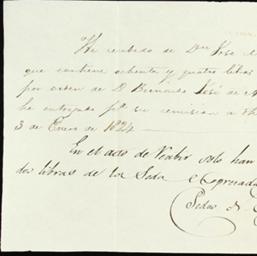 He recibido de Dn Jose
que contiene ochenta y quatro libras
por orden de Dn Bernardo José de
ha entregado pa su remision a
3 de Enero de 1824
En el acto de recibir solo han
dos libras de la Seda
Pedro de